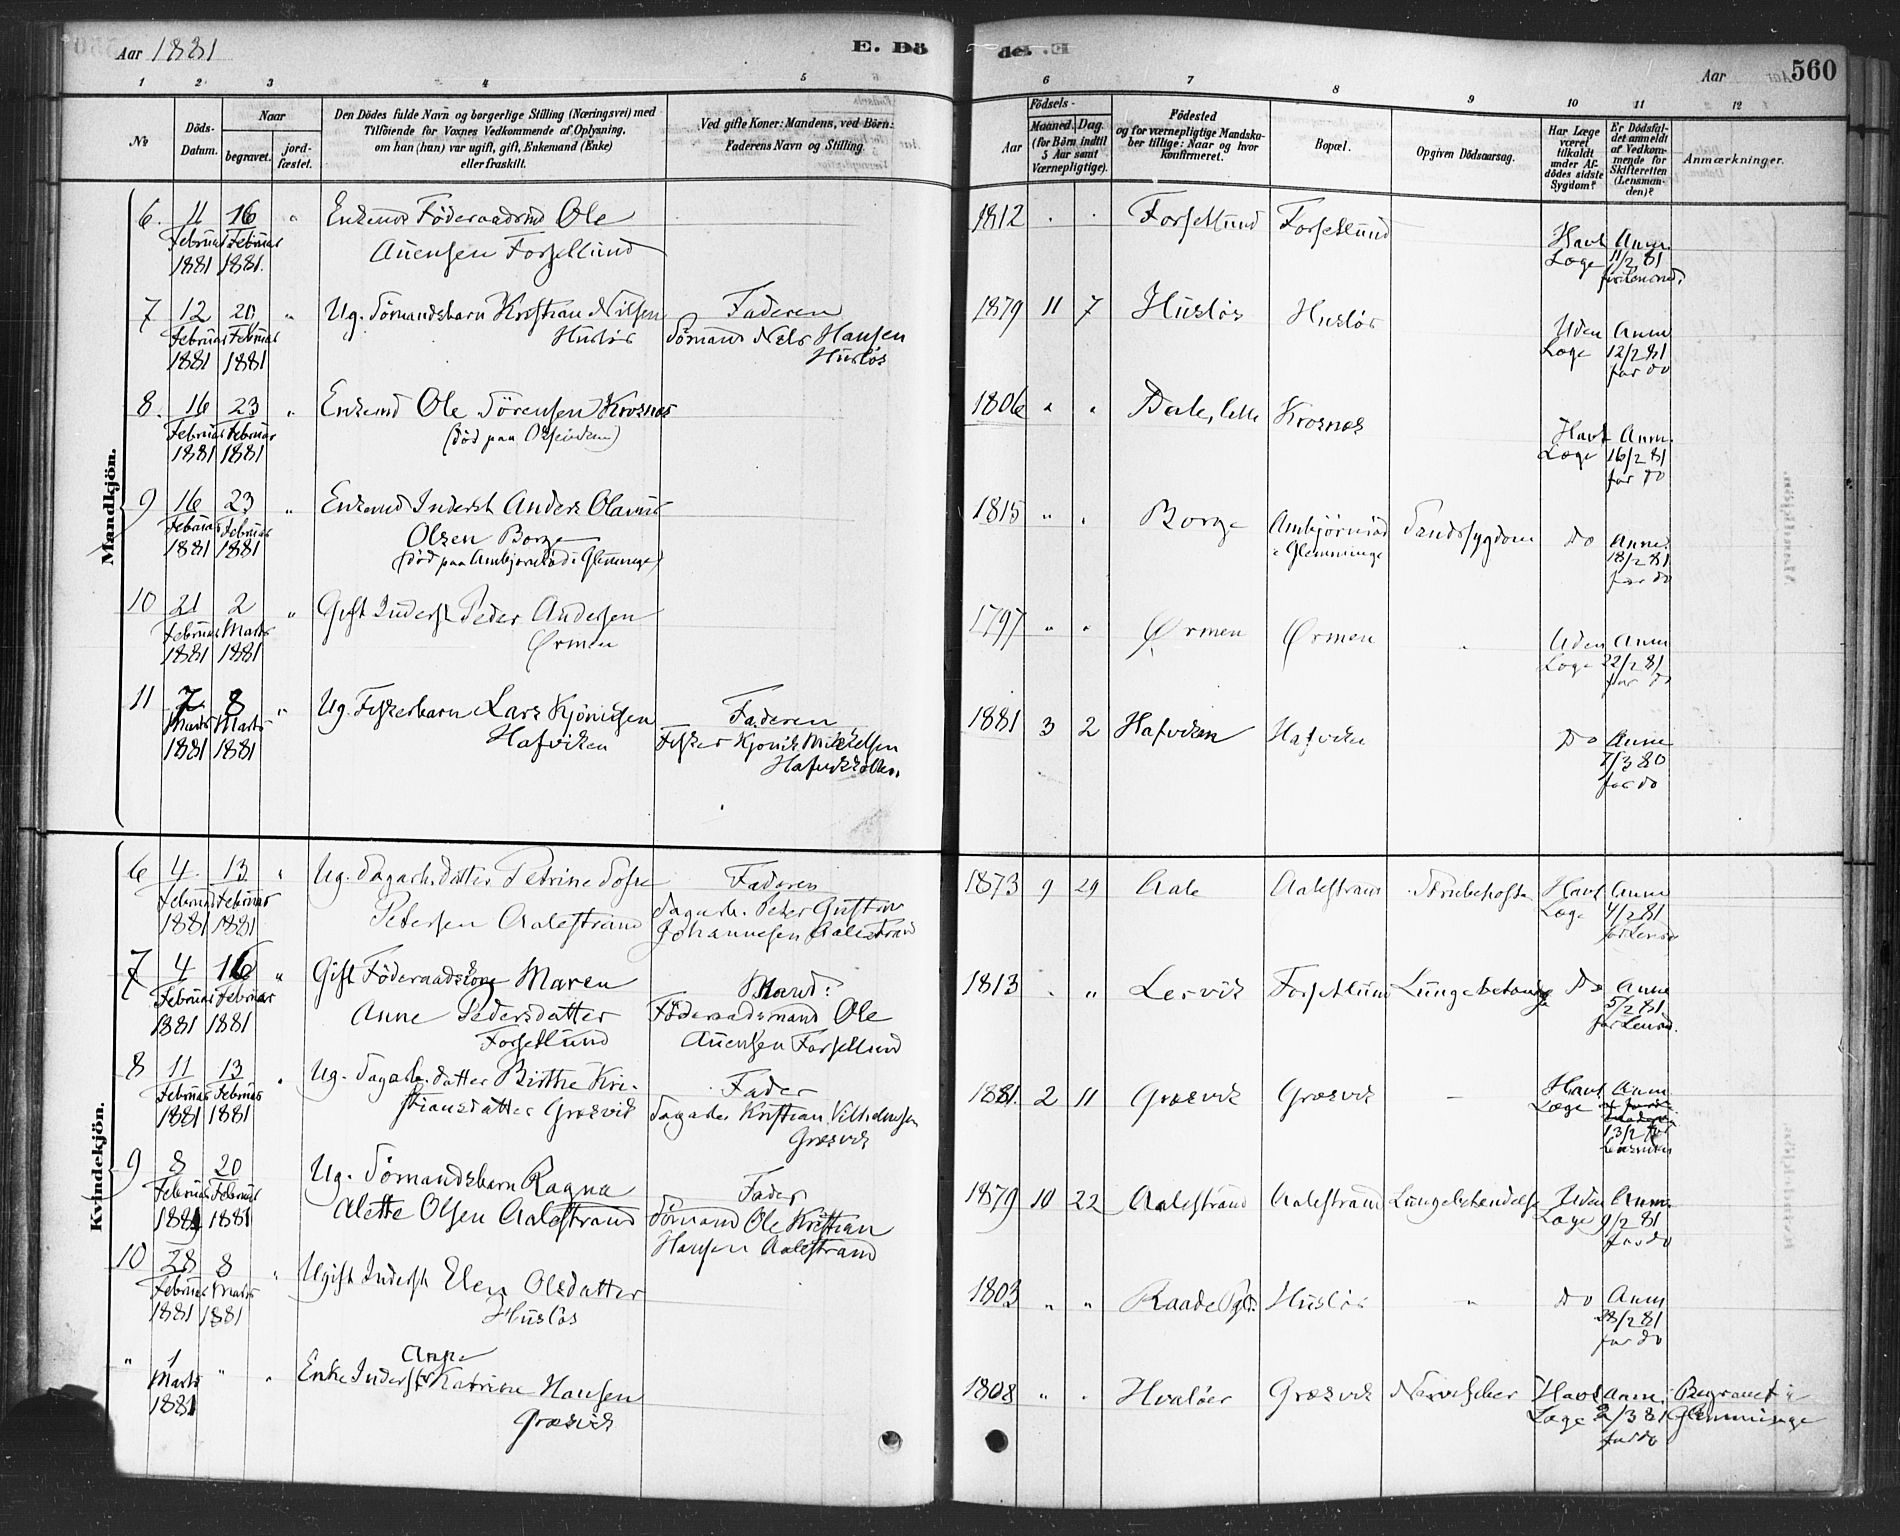 Aar 1881
E. Dö
de. E
Aar
560
1 2 3 4 5 6 7 8 9 10 11 12
No
Döds-Datum.
Naar
begravet.
jord-fæstet.
Den Dödes fulde Navn og borgerlige Stilling (Næringsvei) med
Tilföiende for Voxnes Vedkommende af Oplysning,
om han (hun) var ugift, gift, Enkemand (Enke)
eller fraskilt.
Ved gifte Koner: Mandens, ved Börn:
Faderens Navn og Stilling.
Födsels-
Aar
Maaned. Dag.
(for Börn indtil
5 Aar samt
Værnepligtige).
Födested
og for værnepligtige Mandska-
ber tillige: Naar og hvor
konfirmeret.
Bopæl.
Opgiven Dödsaarsag.
Har Læge
været
tilkaldt
under Af-
dödes sidste
Sygdom?
Er Dödsfal-
det anmeldt
af Vedkom-
mende for
Skifteretten
(Lensman-
den)?
Anmærkninger.
Mandkjön.
6. 11 16 " Enkemd Föderaadsmd Ole 1812 . . Forsetlund Forsetlund Havt Anm.
Februar Februar Auensen Forsetlund Læge 11/2 81
1881 1881. for Lensmd.
7 12 20 " Ug. Sömandsbarn Kristian Nilsen Faderen 1879 11 7 Huslös Huslös Uden Anm
Februar Februar Huslös Sömand Nels Hansen Læge 12/2 81
1881 1881 Huslös for do
8. 16 23 " Enkemd Ole Sörensen Krosnes 1806 " " Dale, lille Krosnes Havt Anm.
Februar Februar (död paa ) Læge 16/2 81
1881 1881 for do
9 16 23 " Enkemd Inderst Anders Olaus 1815 " . Borge Ambjørnrød Sandssygdom do Anm.
Februar Februar Olsen Borge i Glemminge 18/2 81
1881 1881 (död paa Ambjørnrød i Glemminge) for do
10 21 2 " Gift Inderst Peder Andersen 1797 " " Ørmen Ørmen " Uden Anm
Februar Marts Ørmen Læge 22/2 81
1881 1881 for do
11 7 8 " Ug. Fiskerbarn Lars Kjönigsen Faderen 1881 3 2 Hafviken Hafviken do Anm
Marts Marts Hafviken Fisker Kjönik Mikkelsen 7/3 80
1881 1881 for do
Kvindekjön.
6 4 13 " Ug. Sagarb. datter Petrine Sofie Faderen 1873 9 29 Aale Aalestrand Strubehoste Havt Anm
Februar Februar Petersen Aalestrand Sagarb. Peter Gustav Læge 4/2 81
1881 1881 Johannesen Aalestrand for Lensmd
7 4 16 " Gift Föderaadskone Maren Mand: 1813 . " Lervik Forsetlund Lungebetændelse do Anm
Februar Februar Anne Pedersdatter Föderaadsmand Ole 5/2 81
1881 1881 Forsetlund Auensen Forsetlund for Lensmd.
8 11 13 . Ug. Sagarb. datter Birthe Kri- Fader 1881. 2 11 Græsvik Græsvik - Havt Anm
Februar Februar stiansdatter Græsvik Sagarb. Kristian Vilhelmsen Læge
1881 1881 Græsvik 13/2 for
Lensmden
9 8 20 Ug. Sömandsbarn Ragna Fader 1879 10 22 Aalestrand Aalestrand Lungebetændelse Uden Anm.
Februar Februar Alette Olsen Aalestrand Sömand Ole Kristian Læge 9/2 81
1881 1881 Hansen Aalestrand for do
10 28 8 " Ugift Inderst Elen Olsdatter 1803 " " Raade Pgld. Huslös " do Anm
Februar Marts Huslös 28/2 81
1881 1881 for do
" 1 " " Enke Inderst Anne Katrine Hansen 1808 " . Hvaløer Græsvik Nervefeber Havt Anm. Begravet i
Marts Græsvik Læge 2/3 81 Glemminge
1881 for do